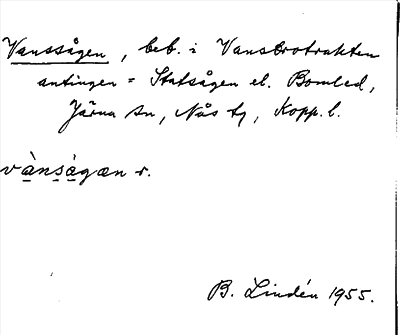 Vanssågen, beb. i Vansbrotrakten
antingen = Statsågen el. Bomled,
Järna sn, Nås tg, Kopp. l.
vànsågæn r.
B. Lindén 1955.